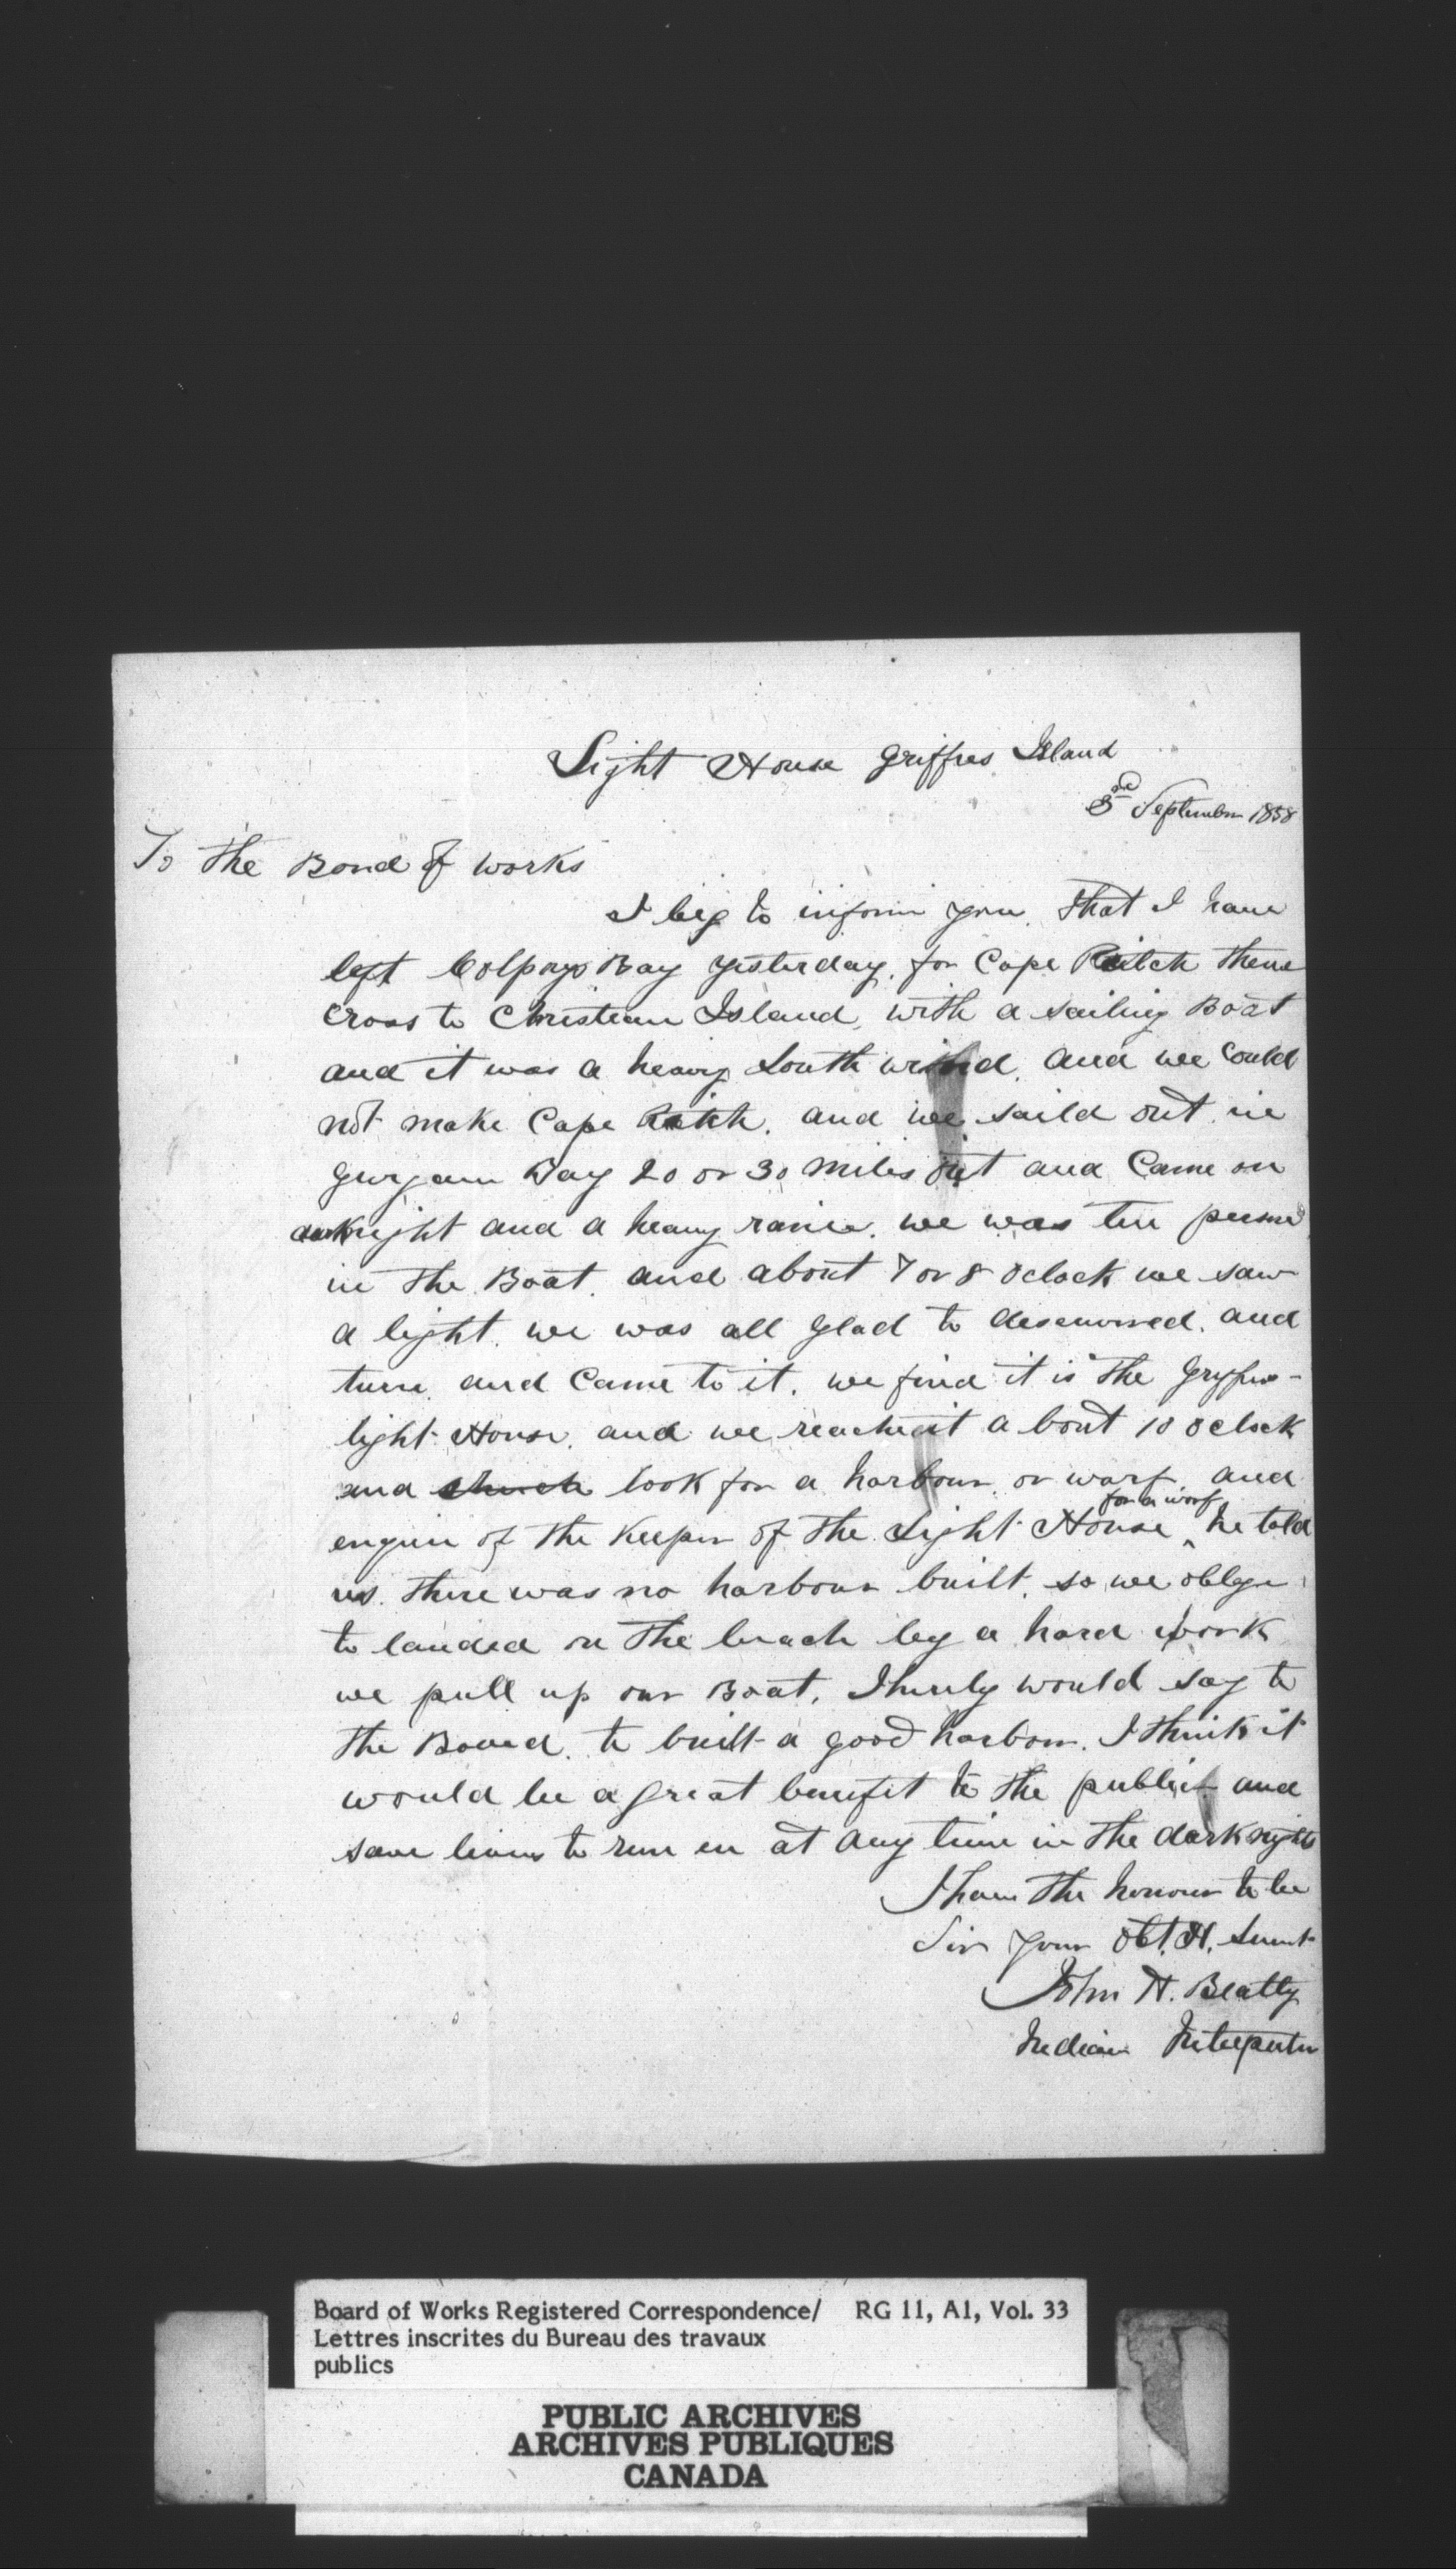 Light House Griffies Island
3rd September 1858
To the Bord of works
I beg to inform you, that I have
left Colpoys Bay yesterday, for Cape Ritch thence
cross to Christian Island, with a sailing Boat
and it was a heavy South wind, and we could
not make Cape Ritch, and we saild out in
Gurgain Bay 20 or 30 miles out and Came on
dark night and a heavy raine. we was ten person
in the Boat, and about 7 or 8 oclock we saw
a light. we was all glad to and
turn, and Came to it. we find it is the Gryffies
light House. and we reached it a bout 10 oclock
and look for a harbour, or warf, and
enguire of the keeper of the Light House for a worf he told
us. there was no harbour built, so we oblige
to landed on the beach by a hard work
we pull up our Boat, I would say to
the Board, to built a good harbour. I think it
would be a great benefit to the public and
save lives to run in at any time in the dark nights
I have the honour to be
Sir your Obt. H. Servt
John H. Beatty
Indian Interpeter
Board of Works Registered Correspondence/ RG 11, A1, Vol. 33
Lettres inscrites du Bureau des travaux
publics
PUBLIC ARCHIVES
ARCHIVES PUBLIQUES
CANADA